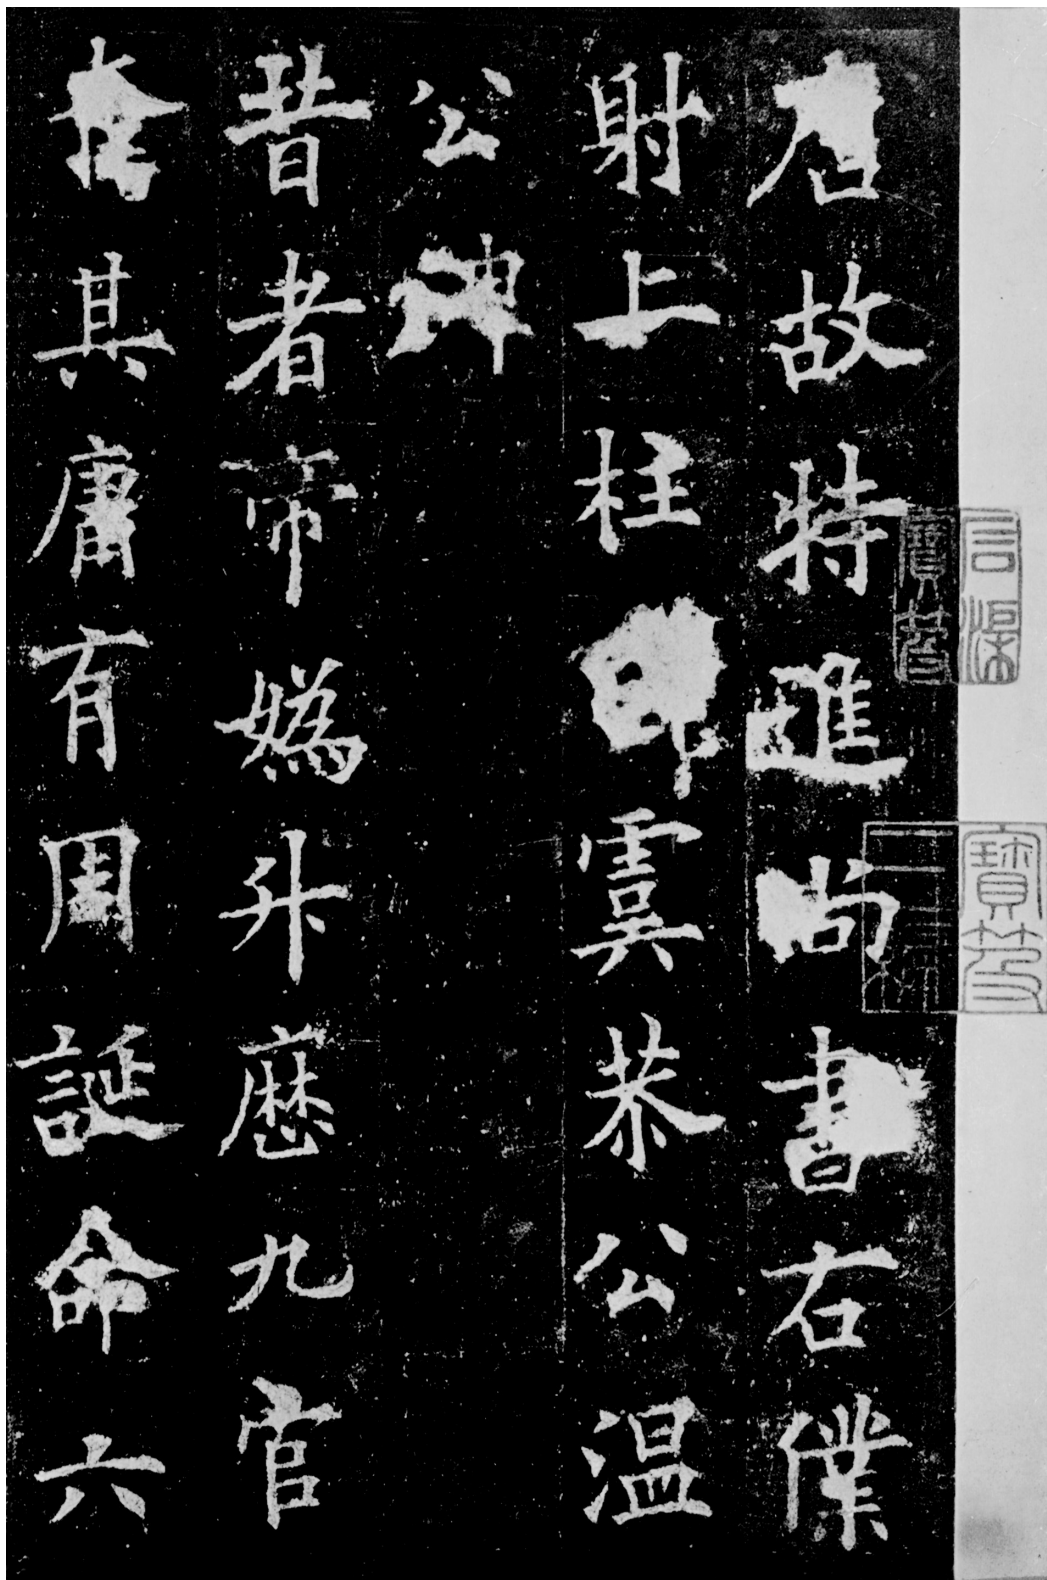 唐故特進尚書右僕
射上柱虞恭公温
公碑
昔者帝媯升歷九官
奮其庸有周誕命六